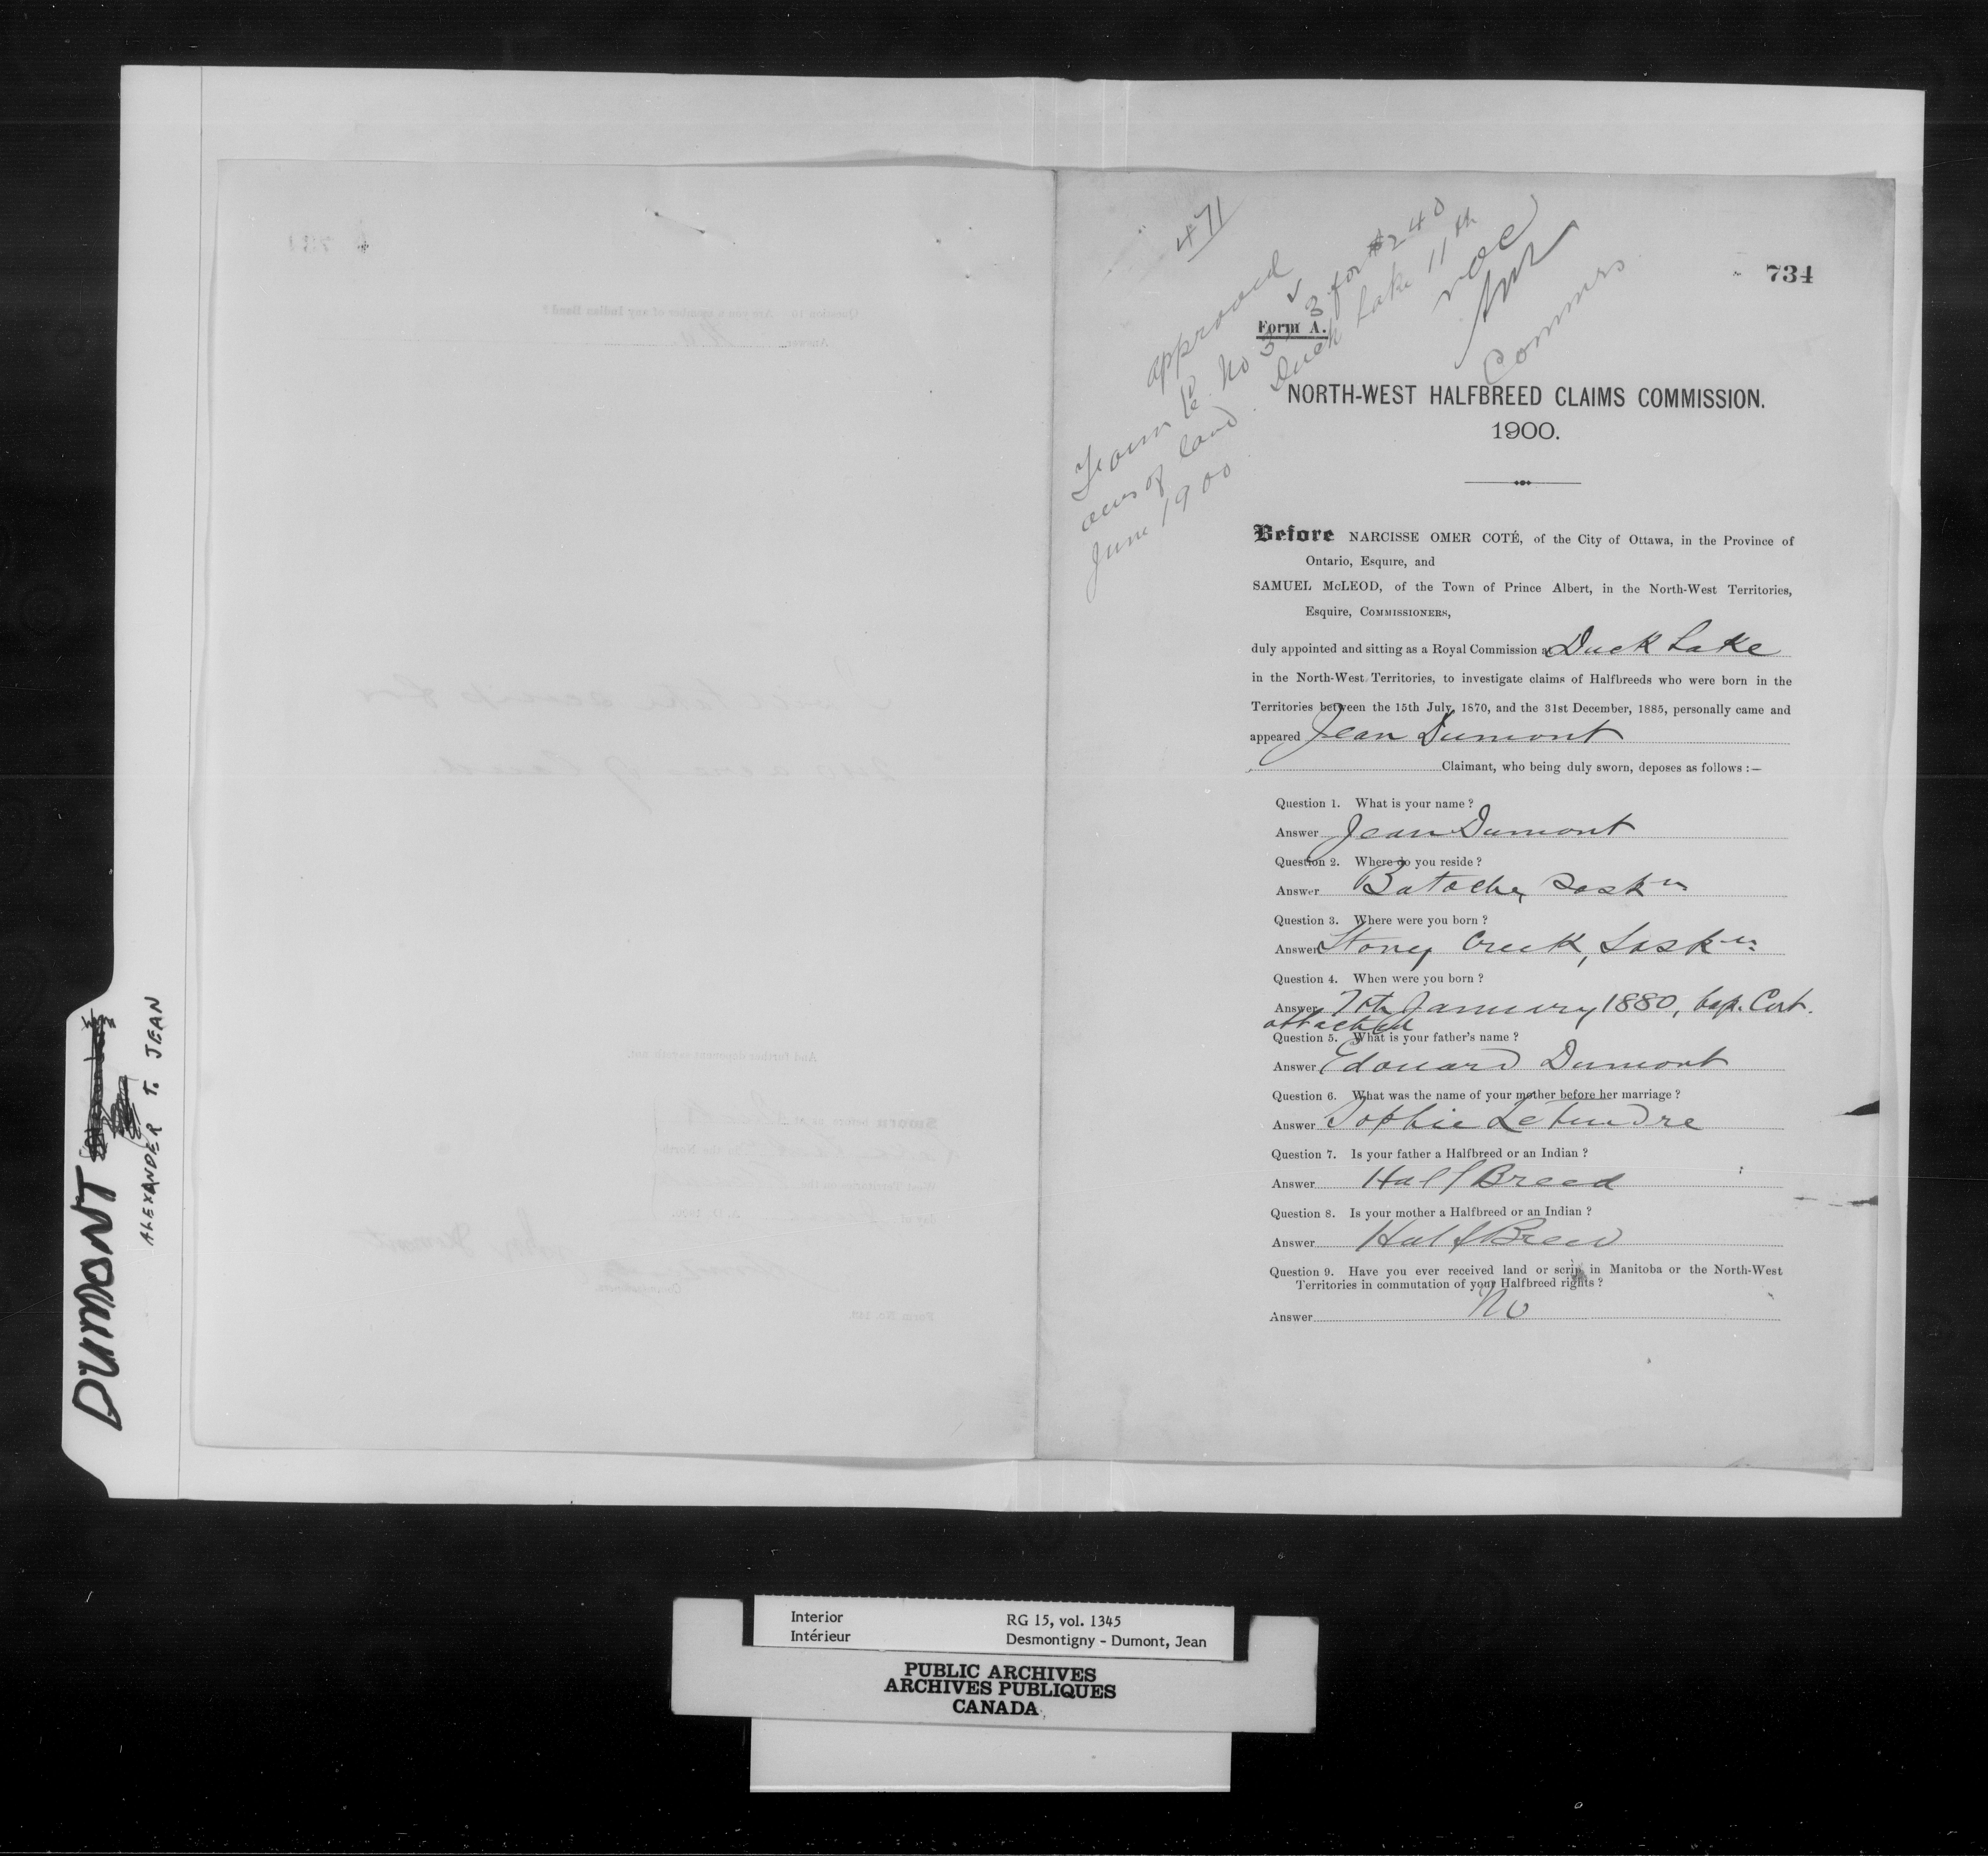 DUMONT
ALEXANDER T. JEAN
471
734
approved
Form No 33 for $240
acres of land. Duck Lake 11th
June 1900
NOC
Commrs
Form A.
NORTH-WEST HALFBREED CLAIMS COMMISSION.
1900.
Before NARCISSE OMER COTÉ, of the City of Ottawa, in the Province of
Ontario, Esquire, and
SAMUEL McLEOD, of the Town of Prince Albert, in the North-West Territories,
Esquire, COMMISSIONERS,
duly appointed and sitting as a Royal Commission at Duck Lake
in the North-West Territories, to investigate claims of Halfbreeds who were born in the
Territories between the 15th July, 1870, and the 31st December, 1885, personally came and
appeared Jean Dumont
Claimant, who being duly sworn, deposes as follows :—
Question 1. What is your name ?
Answer Jean Dumont
Question 2. Where do you reside ?
Answer Batoche, Sask n
Question 3. Where were you born ?
Answer Stoney Creek, Sask n
Question 4. When were you born ?
Answer 7th January 1880, bap. Cert.
attached
Question 5. What is your father's name ?
Answer Edouard Dumont
Question 6. What was the name of your mother before her marriage ?
Answer Sophie Letendre
Question 7. Is your father a Halfbreed or an Indian ?
Answer Half Breed
Question 8. Is your mother a Halfbreed or an Indian ?
Answer Half Breed
Question 9. Have you ever received land or scrip in Manitoba or the North-West
Territories in commutation of your Halfbreed rights ?
Answer No
Interior RG 15, vol. 1345
Intérieur Desmontigny - Dumont, Jean
PUBLIC ARCHIVES
ARCHIVES PUBLIQUES
CANADA